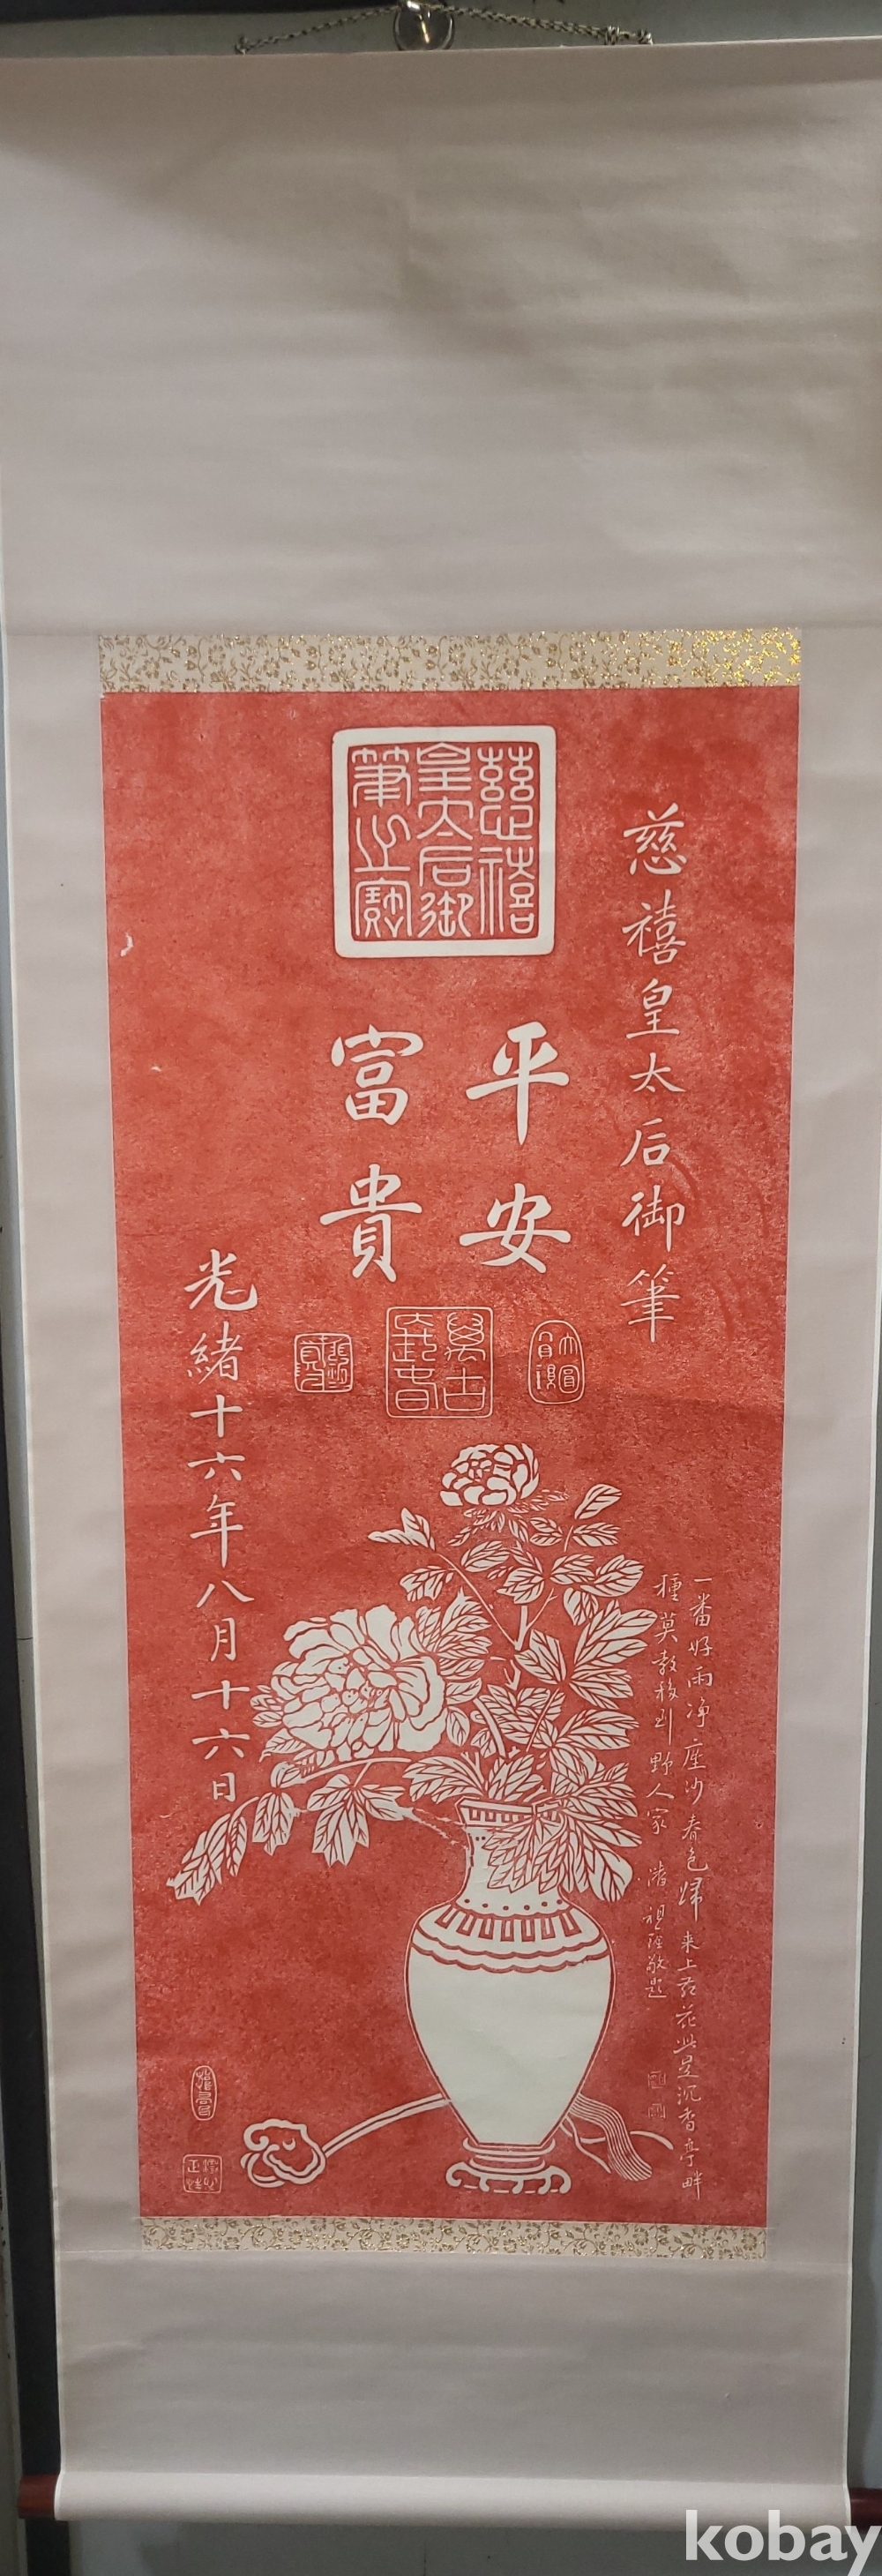 慈禧皇太后御筆之寶
慈禧皇太后御筆
平安
富貴
光緒十六年八月十六日
大圓寶鏡
萬古長春
一番好雨净塵沙春色歸來上苑花此是沉香亭畔
種莫教移到野人家
潘祖蔭敬題
kobay